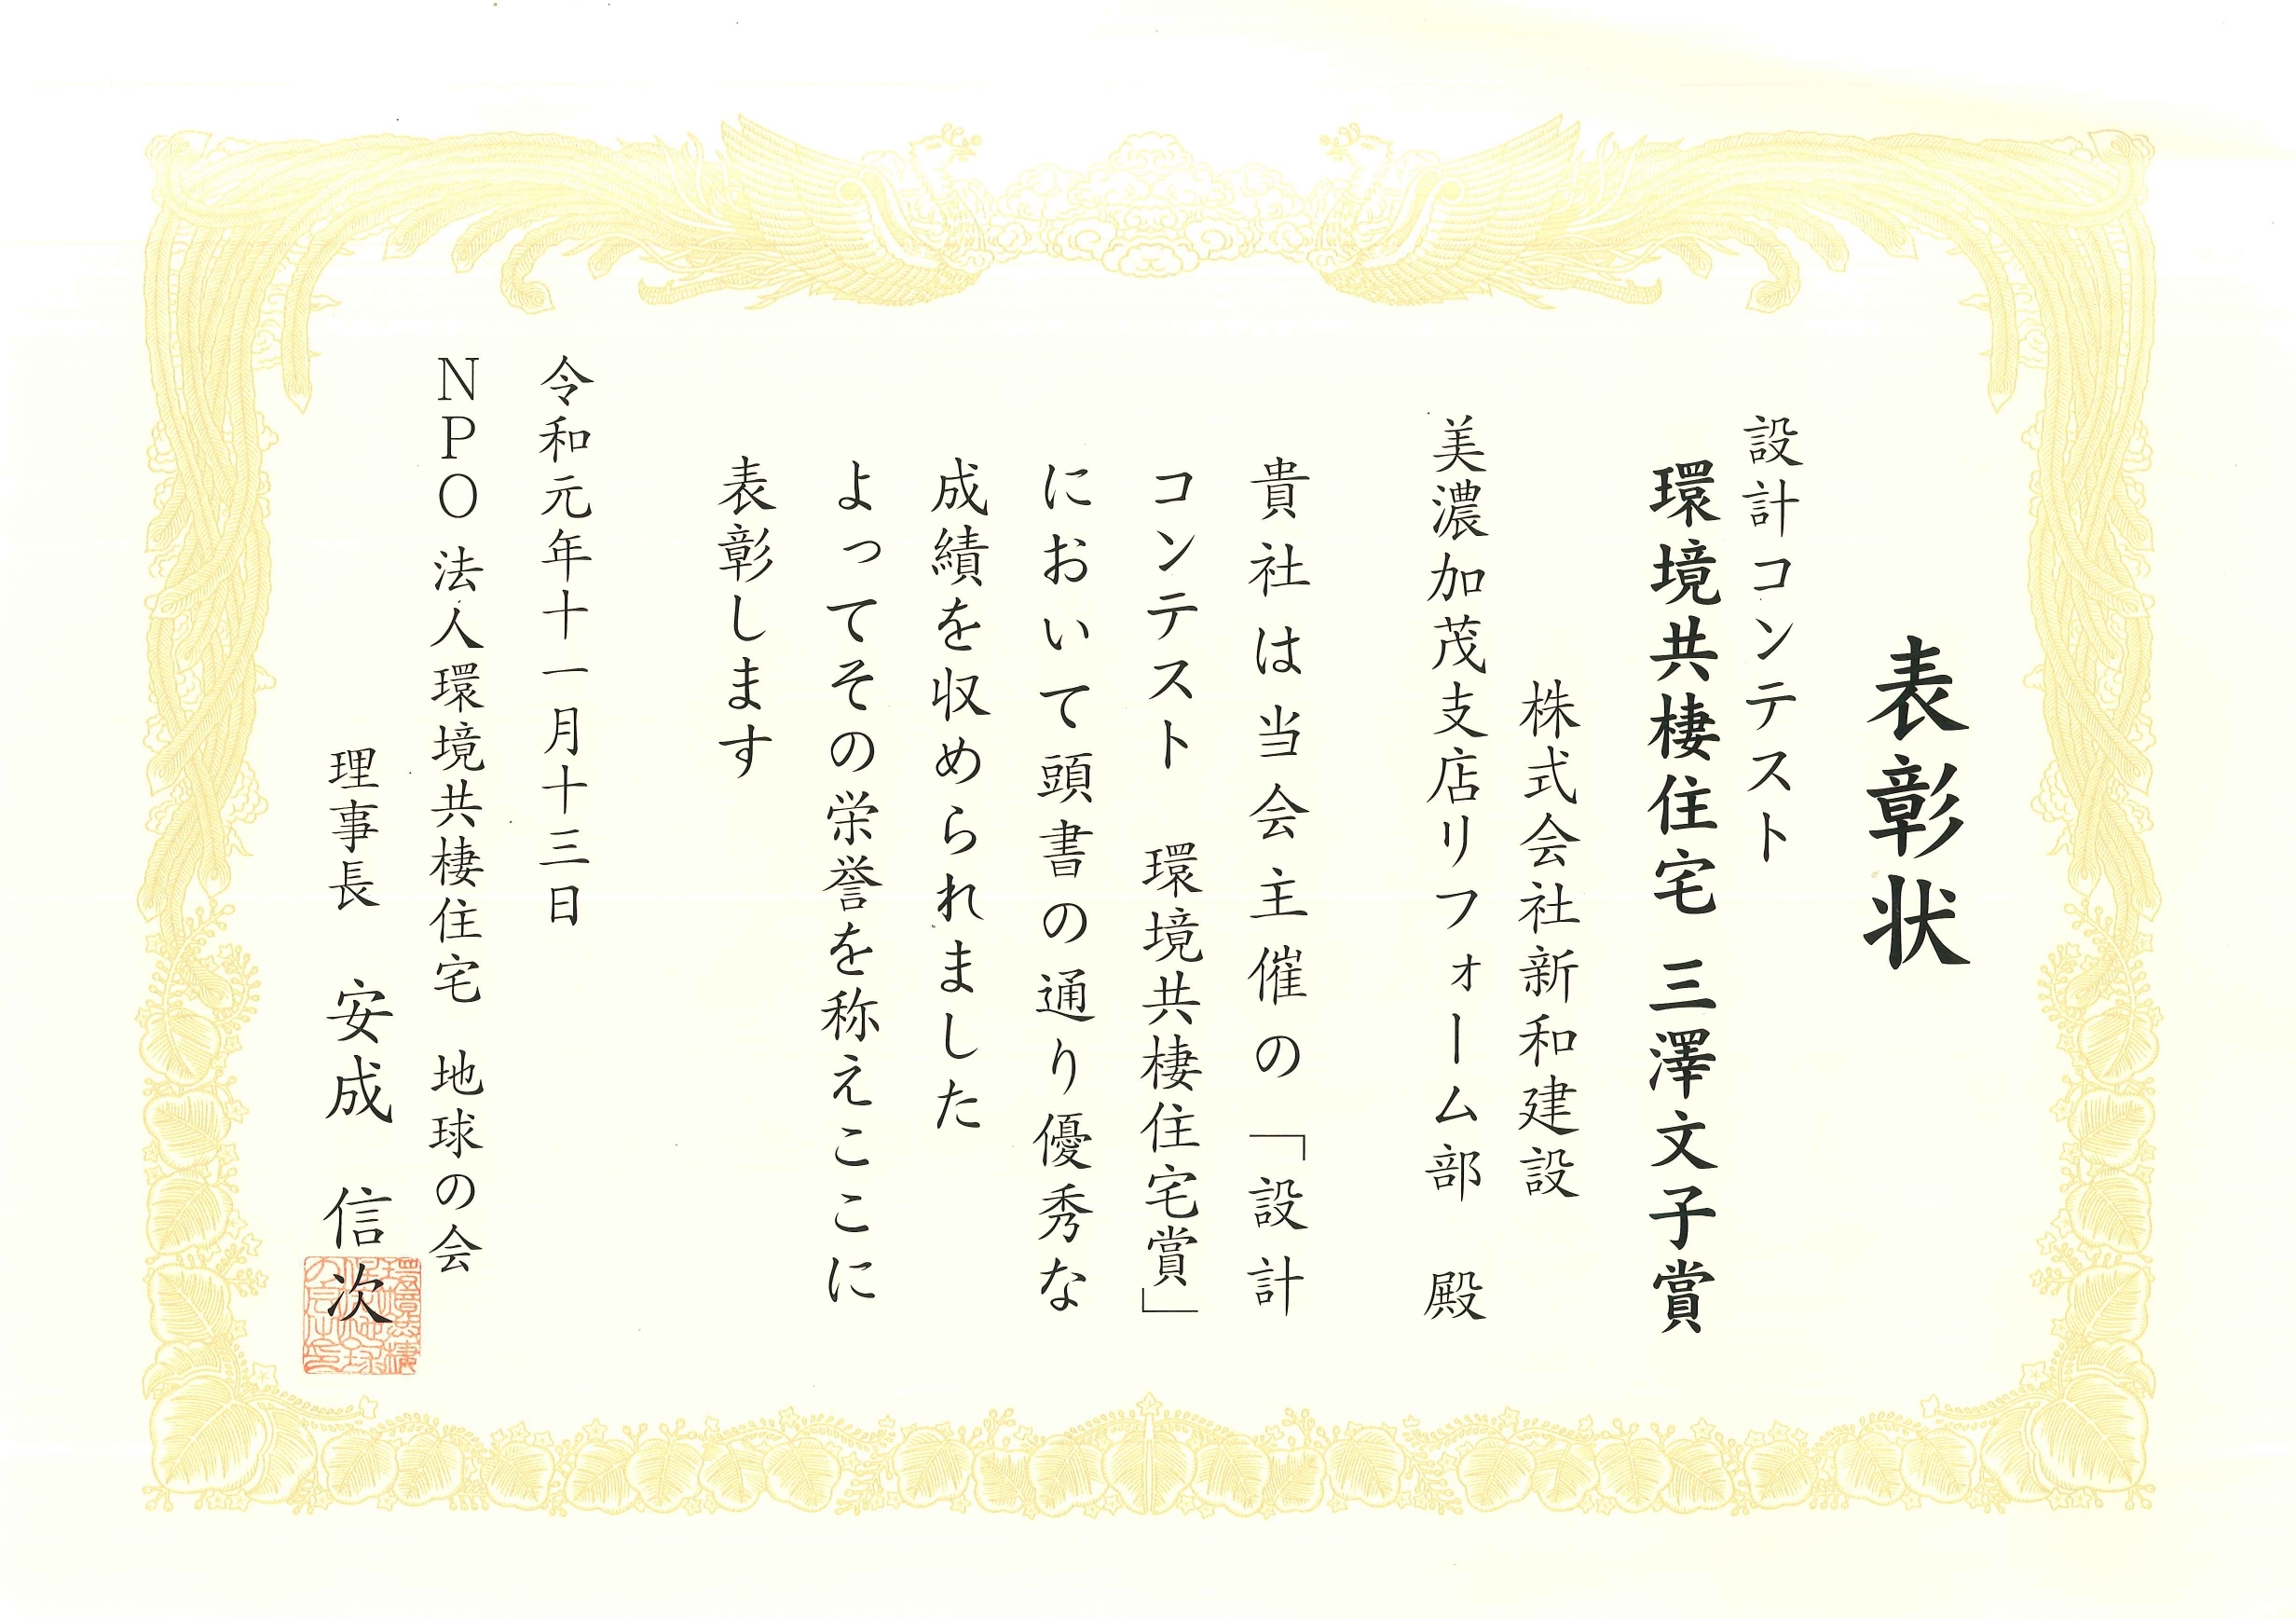 表彰状
設計コンテスト
環境共棲住宅 三澤文子賞
株式会社新和建設
美濃加茂支店リフォーム部 殿
貴社は当会主催の「設計
コンテスト 環境共棲住宅賞」
において頭書の通り優秀な
成績を収められました
よってその栄誉を称えここに
表彰します
令和元年十一月十三日
NPO法人環境共棲住宅 地球の会
理事長 安成 信次